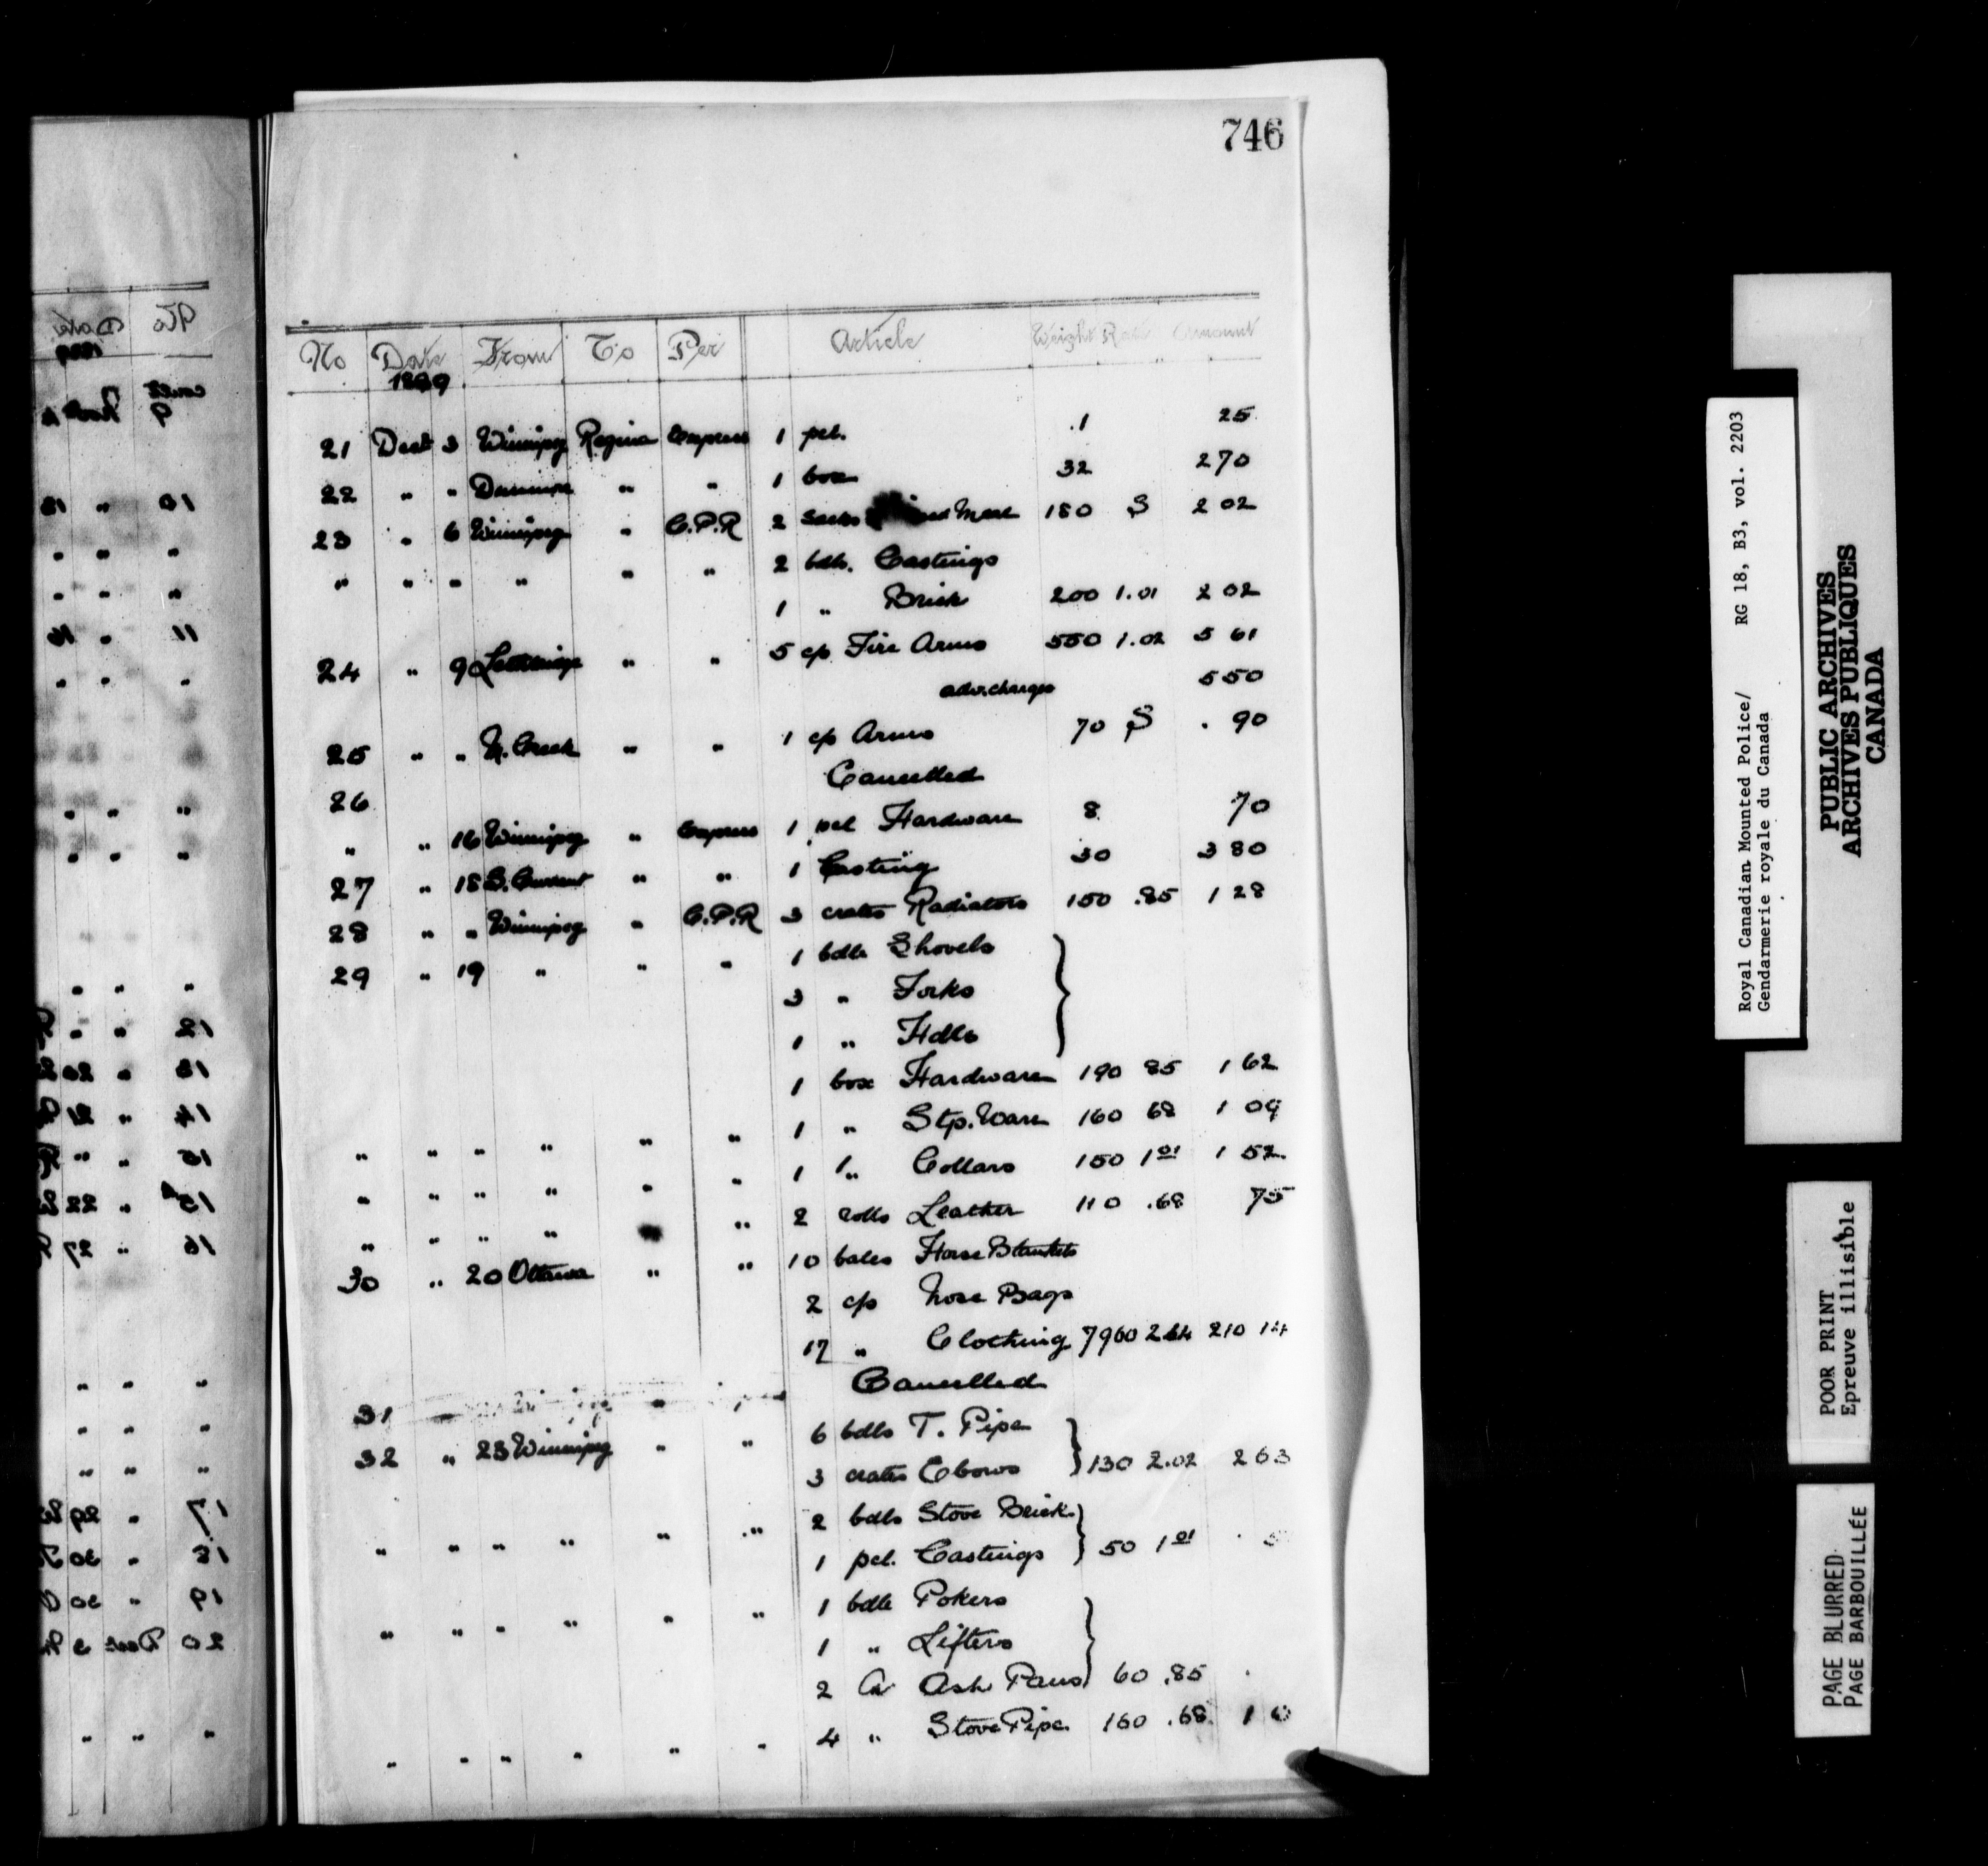 746
No Date From To Per Article Weight Rate Amount
1899
21 Dect 3 Winnipeg Regina Express 1 pcl. .1 25
22 " " " " 1 box 32 2 70
23 " 6 Winnipeg " C.P.R 2 Sacks Meal 180 S 2 02
" " " " " " 2 bdls. Castings
1 " Brick 200 1.01 2 02
24 " 9 Lethbridge " " 5 c/s Fire Arms 550 1.02 5 61
adv. charges 5 50
25 " " M. Creek " " 1 c/s Arms 70 S . 90
26 Cancelled
" " 16 Winnipeg " Express 1 pcl Hardware 8 70
27 " 18 S. Current " " 1 Casting 30 3 80
28 " " Winnipeg " C.P.R 3 crates Radiators 150 .85 1 28
29 " 19 " " " 1 bdle Shovels
3 " Forks
1 " Hdls
1 box Hardware 190 85 1 62
" " " " " " 1 " Stp. Ware 160 68 1 09
" " " " " " 1 " Collars 150 1 01 1 52
" " " " " 2 rolls Leather 110 .68 75
30 " 20 Ottawa " " 10 bales Horse Blankets
2 c/s Nose Bags
17 " Clothing 7960 2 64 210 14
31 Cancelled
32 " 23 Winnipeg " " 6 bdls T. Pipe
3 crates Elbows 130 2.02 2 63
" " " " " " 2 bdls Stove Brick
1 pcl. Castings 50 1 01 . 5
" " " " " " 1 bdle Pokers
1 " Lifters
2 Cr Ash Pans 60 .85
" " " " " " 4 " Stove Pipe 160 .68 1 0
Royal Canadian Mounted Police/ RG 18, B3, vol. 2203
Gendarmerie royale du Canada
PUBLIC ARCHIVES
ARCHIVES PUBLIQUES
CANADA
POOR PRINT
Epreuve illisible
PAGE BLURRED
PAGE BARBOUILLÉE